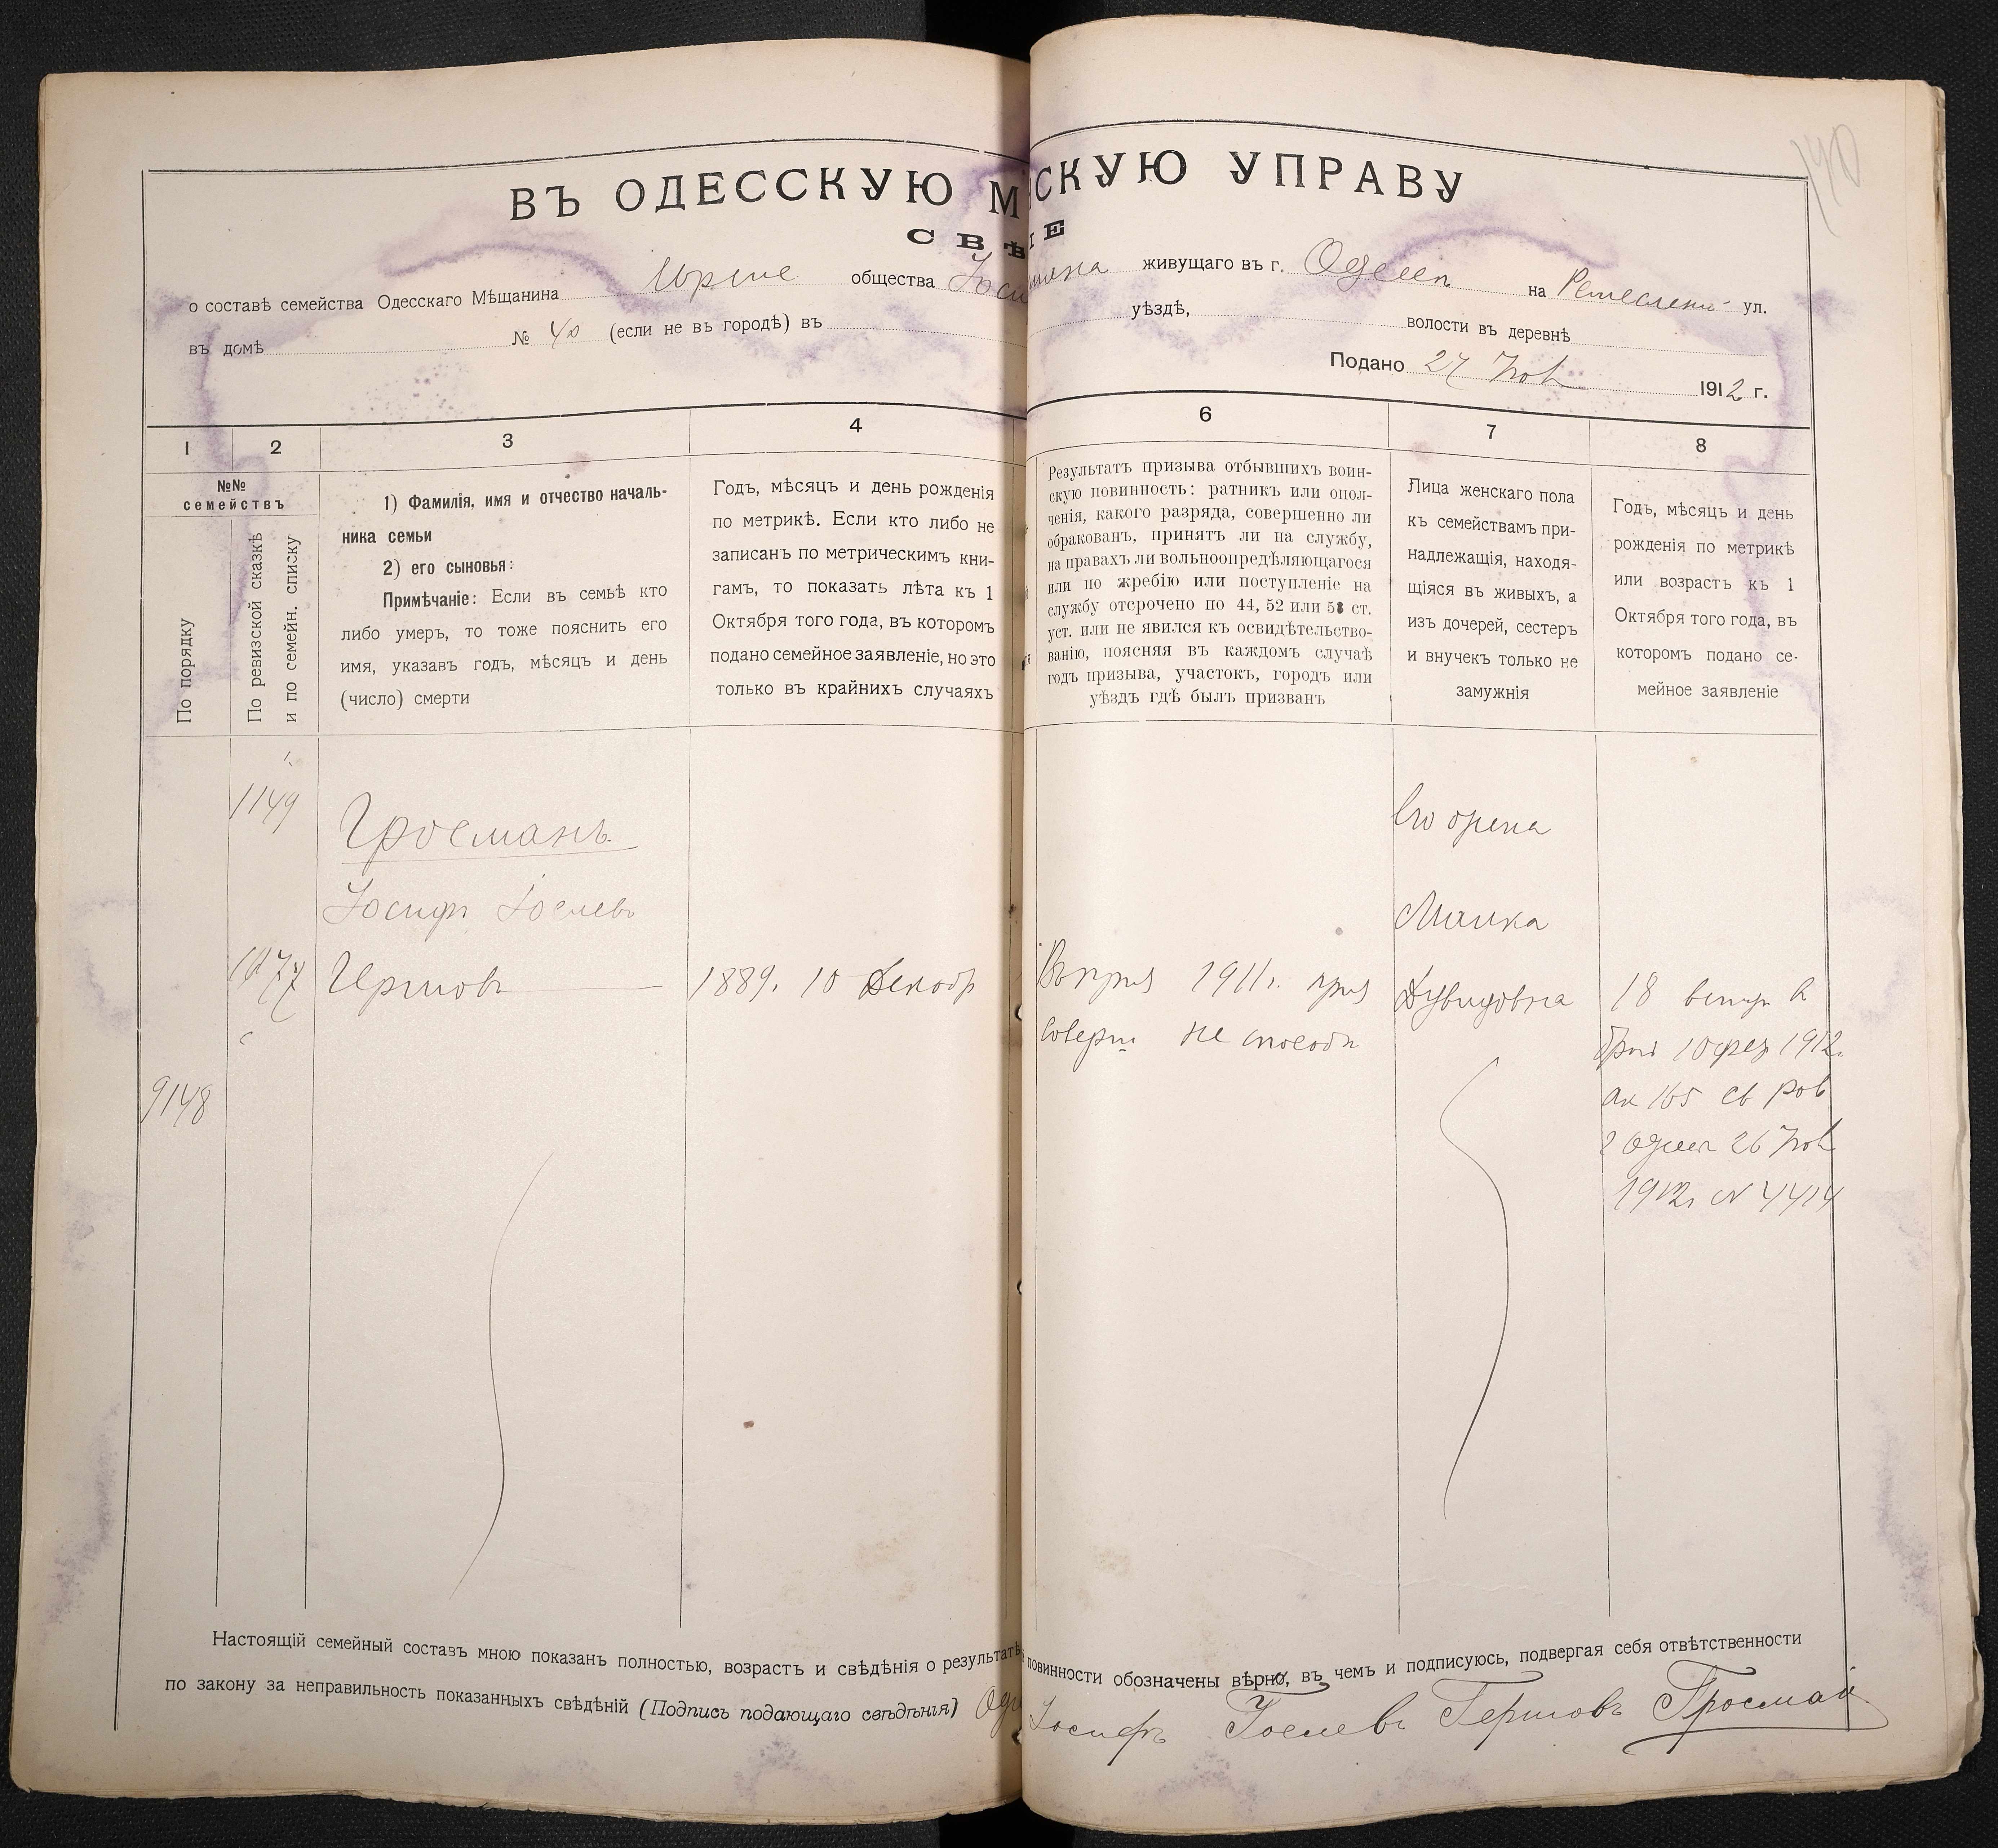 140
ВЪ ОДЕССКУЮ М СКУЮ УПРАВУ
СВѢ IЕ
о составѣ семейства Одесскаго Мѣщанина общества живущаго въ г. Одессѣ на Ремеслен ул.
въ домѣ № 40 (если не въ городѣ) въ уѣздѣ, волости въ деревнѣ
Подано 27 Ноя 1912 г.
1 2 3 4 6 7 8
№№ семействъ
По порядку
По ревизской сказкѣ
и по семейн. списку
1) Фамилія, имя и отчество началь-
ника семьи
2) его сыновья:
Примѣчаніе: Если въ семьѣ кто
либо умеръ, то тоже пояснить его
имя, указавъ годъ, мѣсяцъ и день
(число) смерти
Годъ, мѣсяцъ и день рожденія
по метрикѣ. Если кто либо не
записанъ по метрическимъ кни-
гамъ, то показать лѣта къ 1
Октября того года, въ которомъ
подано семейное заявленіе, но это
только въ крайнихъ случаяхъ
Результатъ призыва отбывшихъ воин-
скую повинность: ратникъ или опол-
ченія, какого разряда, совершенно ли
обракованъ, принятъ ли на службу,
на правахъ ли вольноопредѣляющагося
или по жребію или поступленіе на
службу отсрочено по 44, 52 или 58 ст.
уст. или не явился къ освидѣтельство-
ванію, поясняя въ каждомъ случаѣ
годъ призыва, участокъ, городъ или
уѣздъ гдѣ былъ призванъ
Лица женскаго пола
къ семействамъ при-
надлежащія, находя-
щіяся въ живыхъ, а
изъ дочерей, сестеръ
и внучекъ только не
замужнія
Годъ, мѣсяцъ и день
рожденія по метрикѣ
или возрастъ къ 1
Октября того года, въ
которомъ подано се-
мейное заявленіе
1149
Гросманъ
Іосифъ Іоселевъ
Гершовъ
1889. 10 Декабр
1911г.
соверш не способн
Малка
Дувидовна
18
10 1912.
ак 165 св рав
г Одессы 26 Ноя
1912г N 4414
9148
Настоящій семейный составъ мною показанъ полностью, возрастъ и свѣдѣнія о результатѣ повинности обозначены вѣрно, въ чемъ и подписуюсь, подвергая себя отвѣтственности
по закону за неправильность показанныхъ свѣдѣній (Подпись подающаго свѣдѣнія) Іосифъ Іоселевъ Гершовъ Гросман